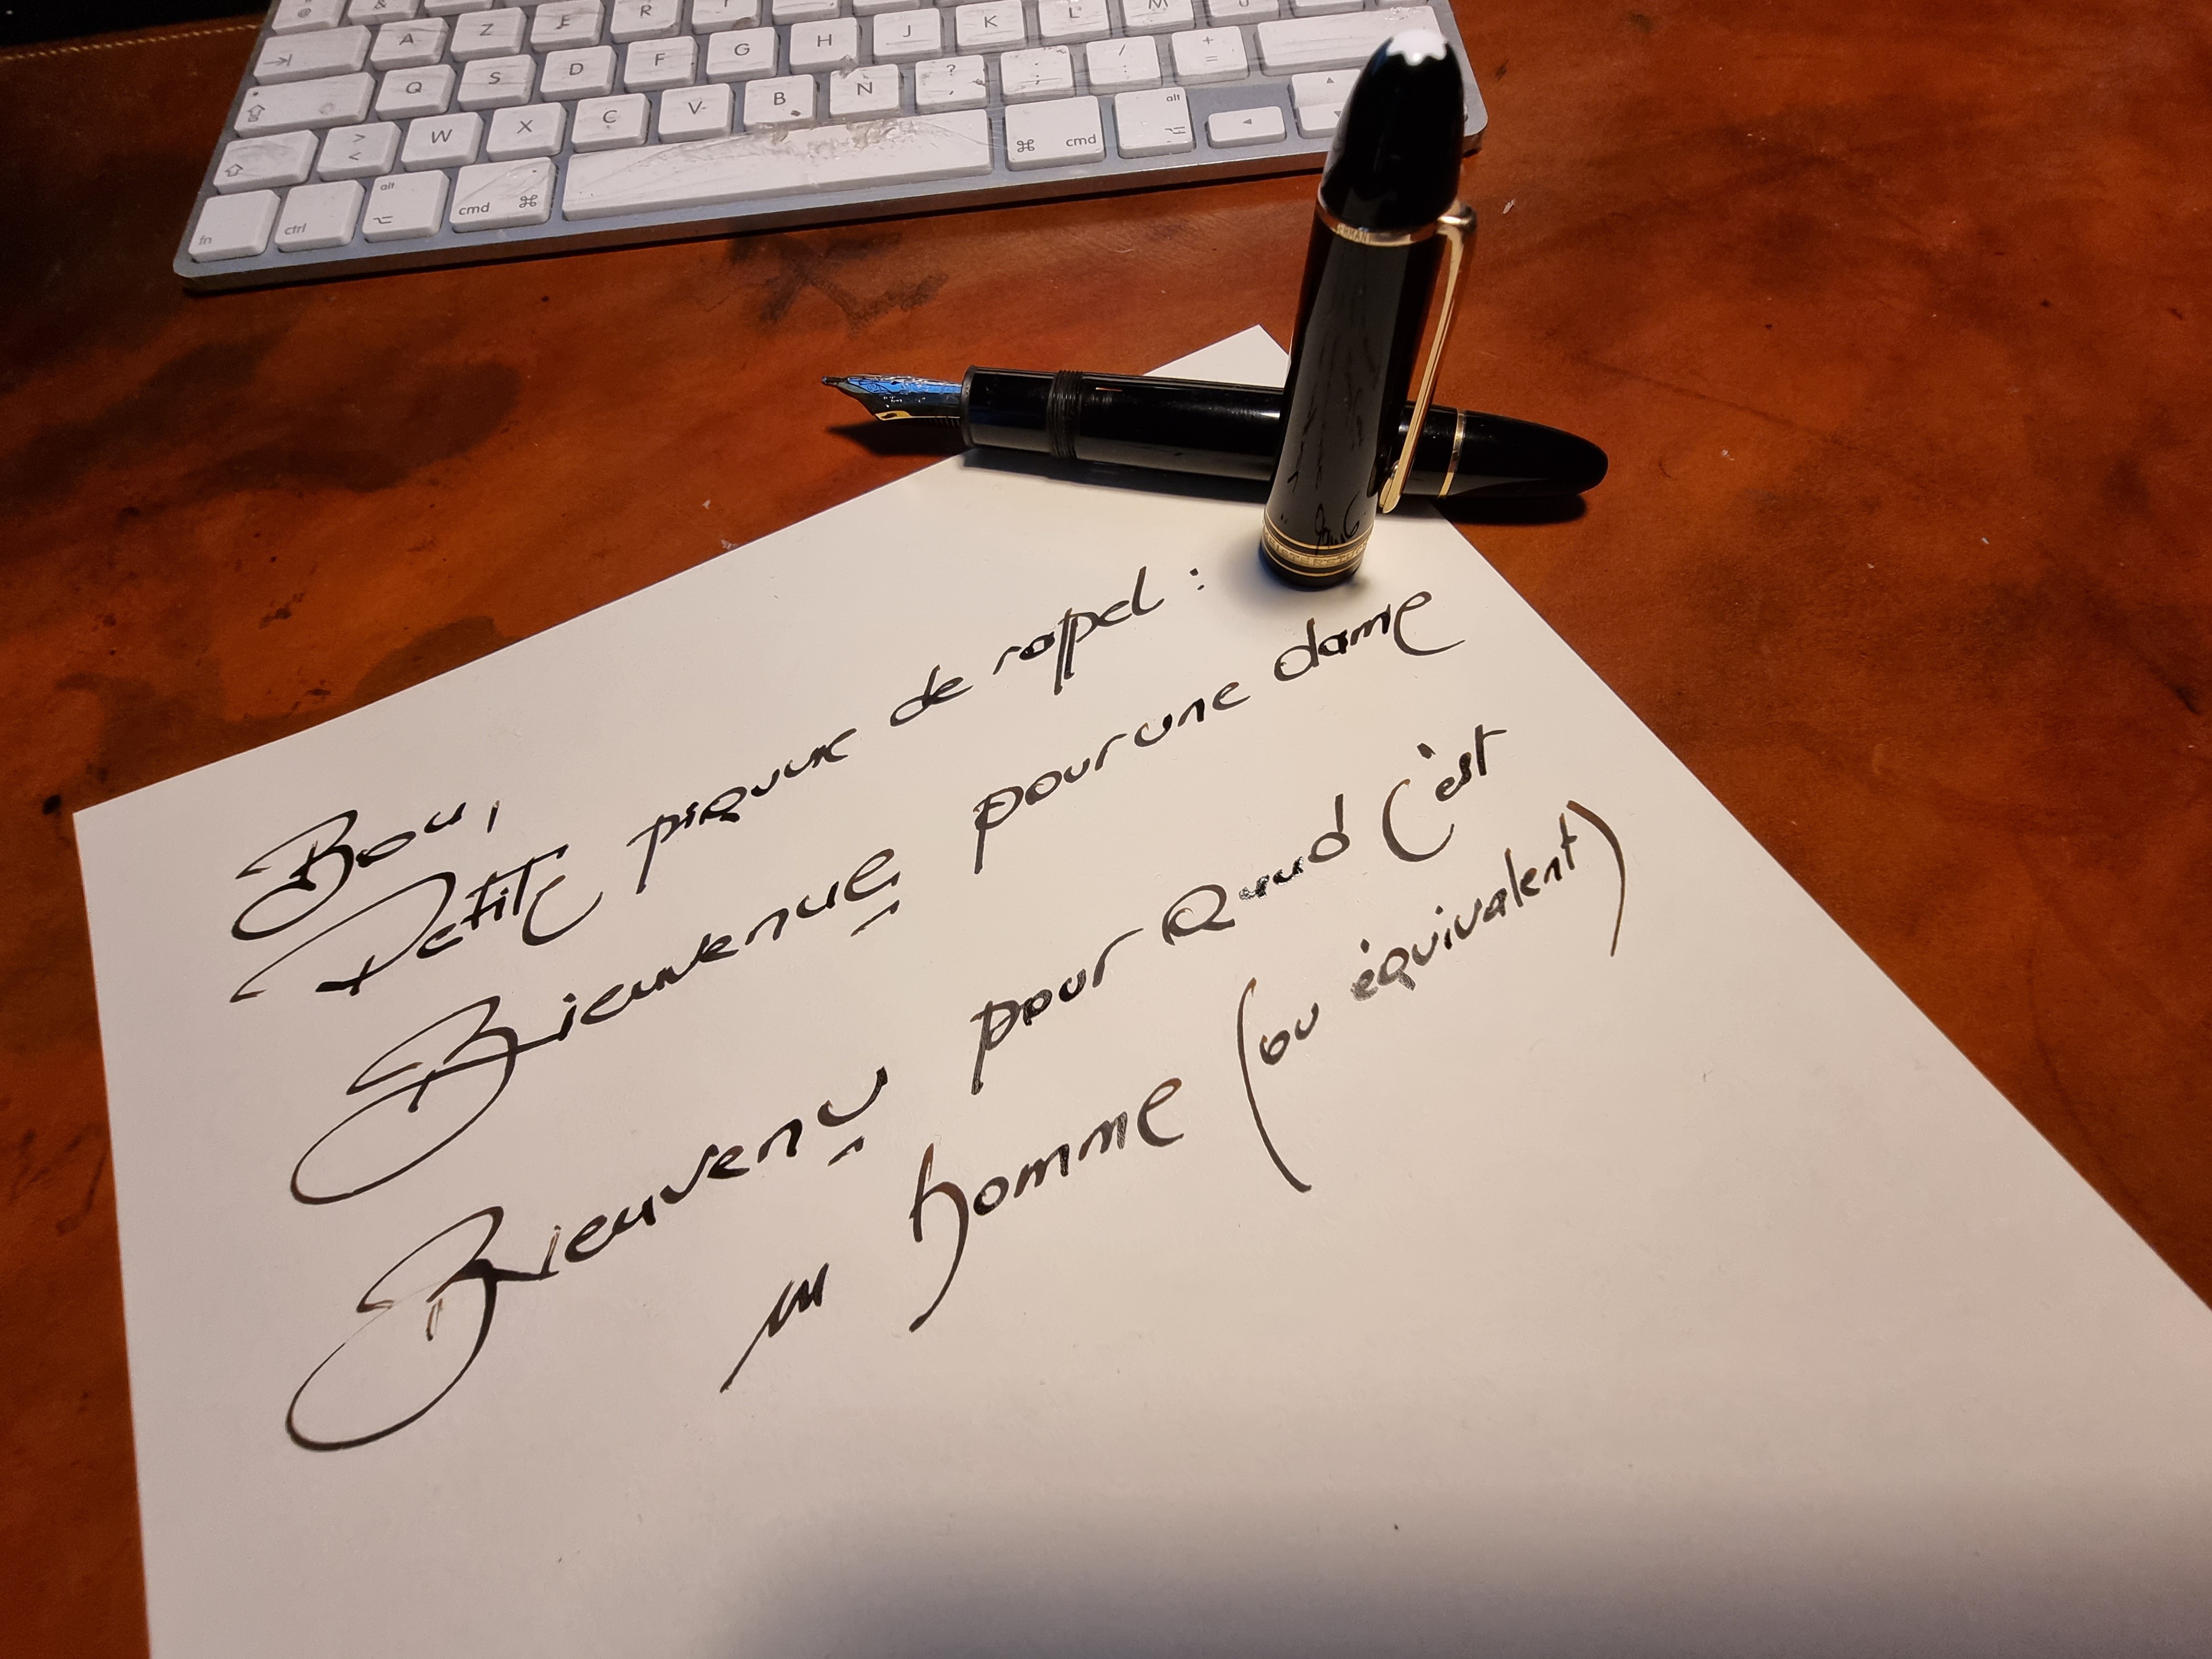 @ &
A Z E R T
Q S D F G H J K L M
W X C V B N ? / + =
> <
fn ctrl alt cmd cmd alt
Bon,
Petite piqure de rappel :
Bienvenue pour une dame
Bienvenu pour quand c'est
un homme (ou équivalent)